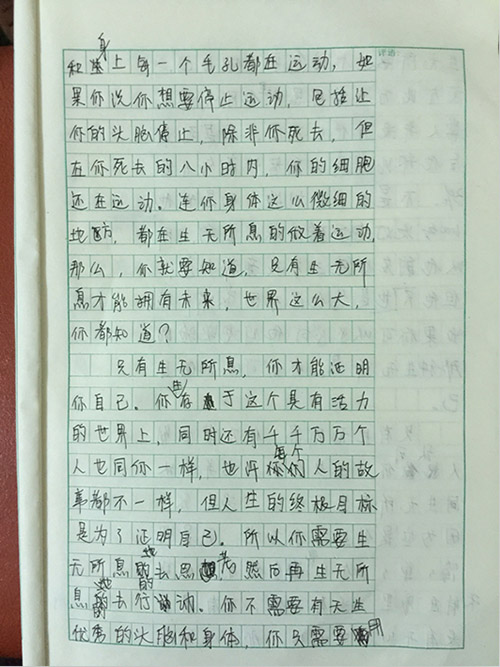 和身上每一个毛孔都在运动，如
果你说你想要停止运动，包括让
你的头脑停止，除非你死去，但
在你死去的八小时内，你的细胞
还在运动。连你身体这么微细的
地方，都在生无所息的做着运动，
那么，你就要知道，只有生无所
息才能拥有未来，世界这么大，
你都知道？
只有生无所息，你才能证明
你自己。你生存于这个具有活力
的世界上，同时还有千千万万个
人也同你一样，也许每个人的故
事都不一样，但人生的终极目标
是为了证明自己。所以你需要生
无所息地去思考，然后再生无所
息地去行动。你不需要有天生
优秀的头脑和身体，你只需要用